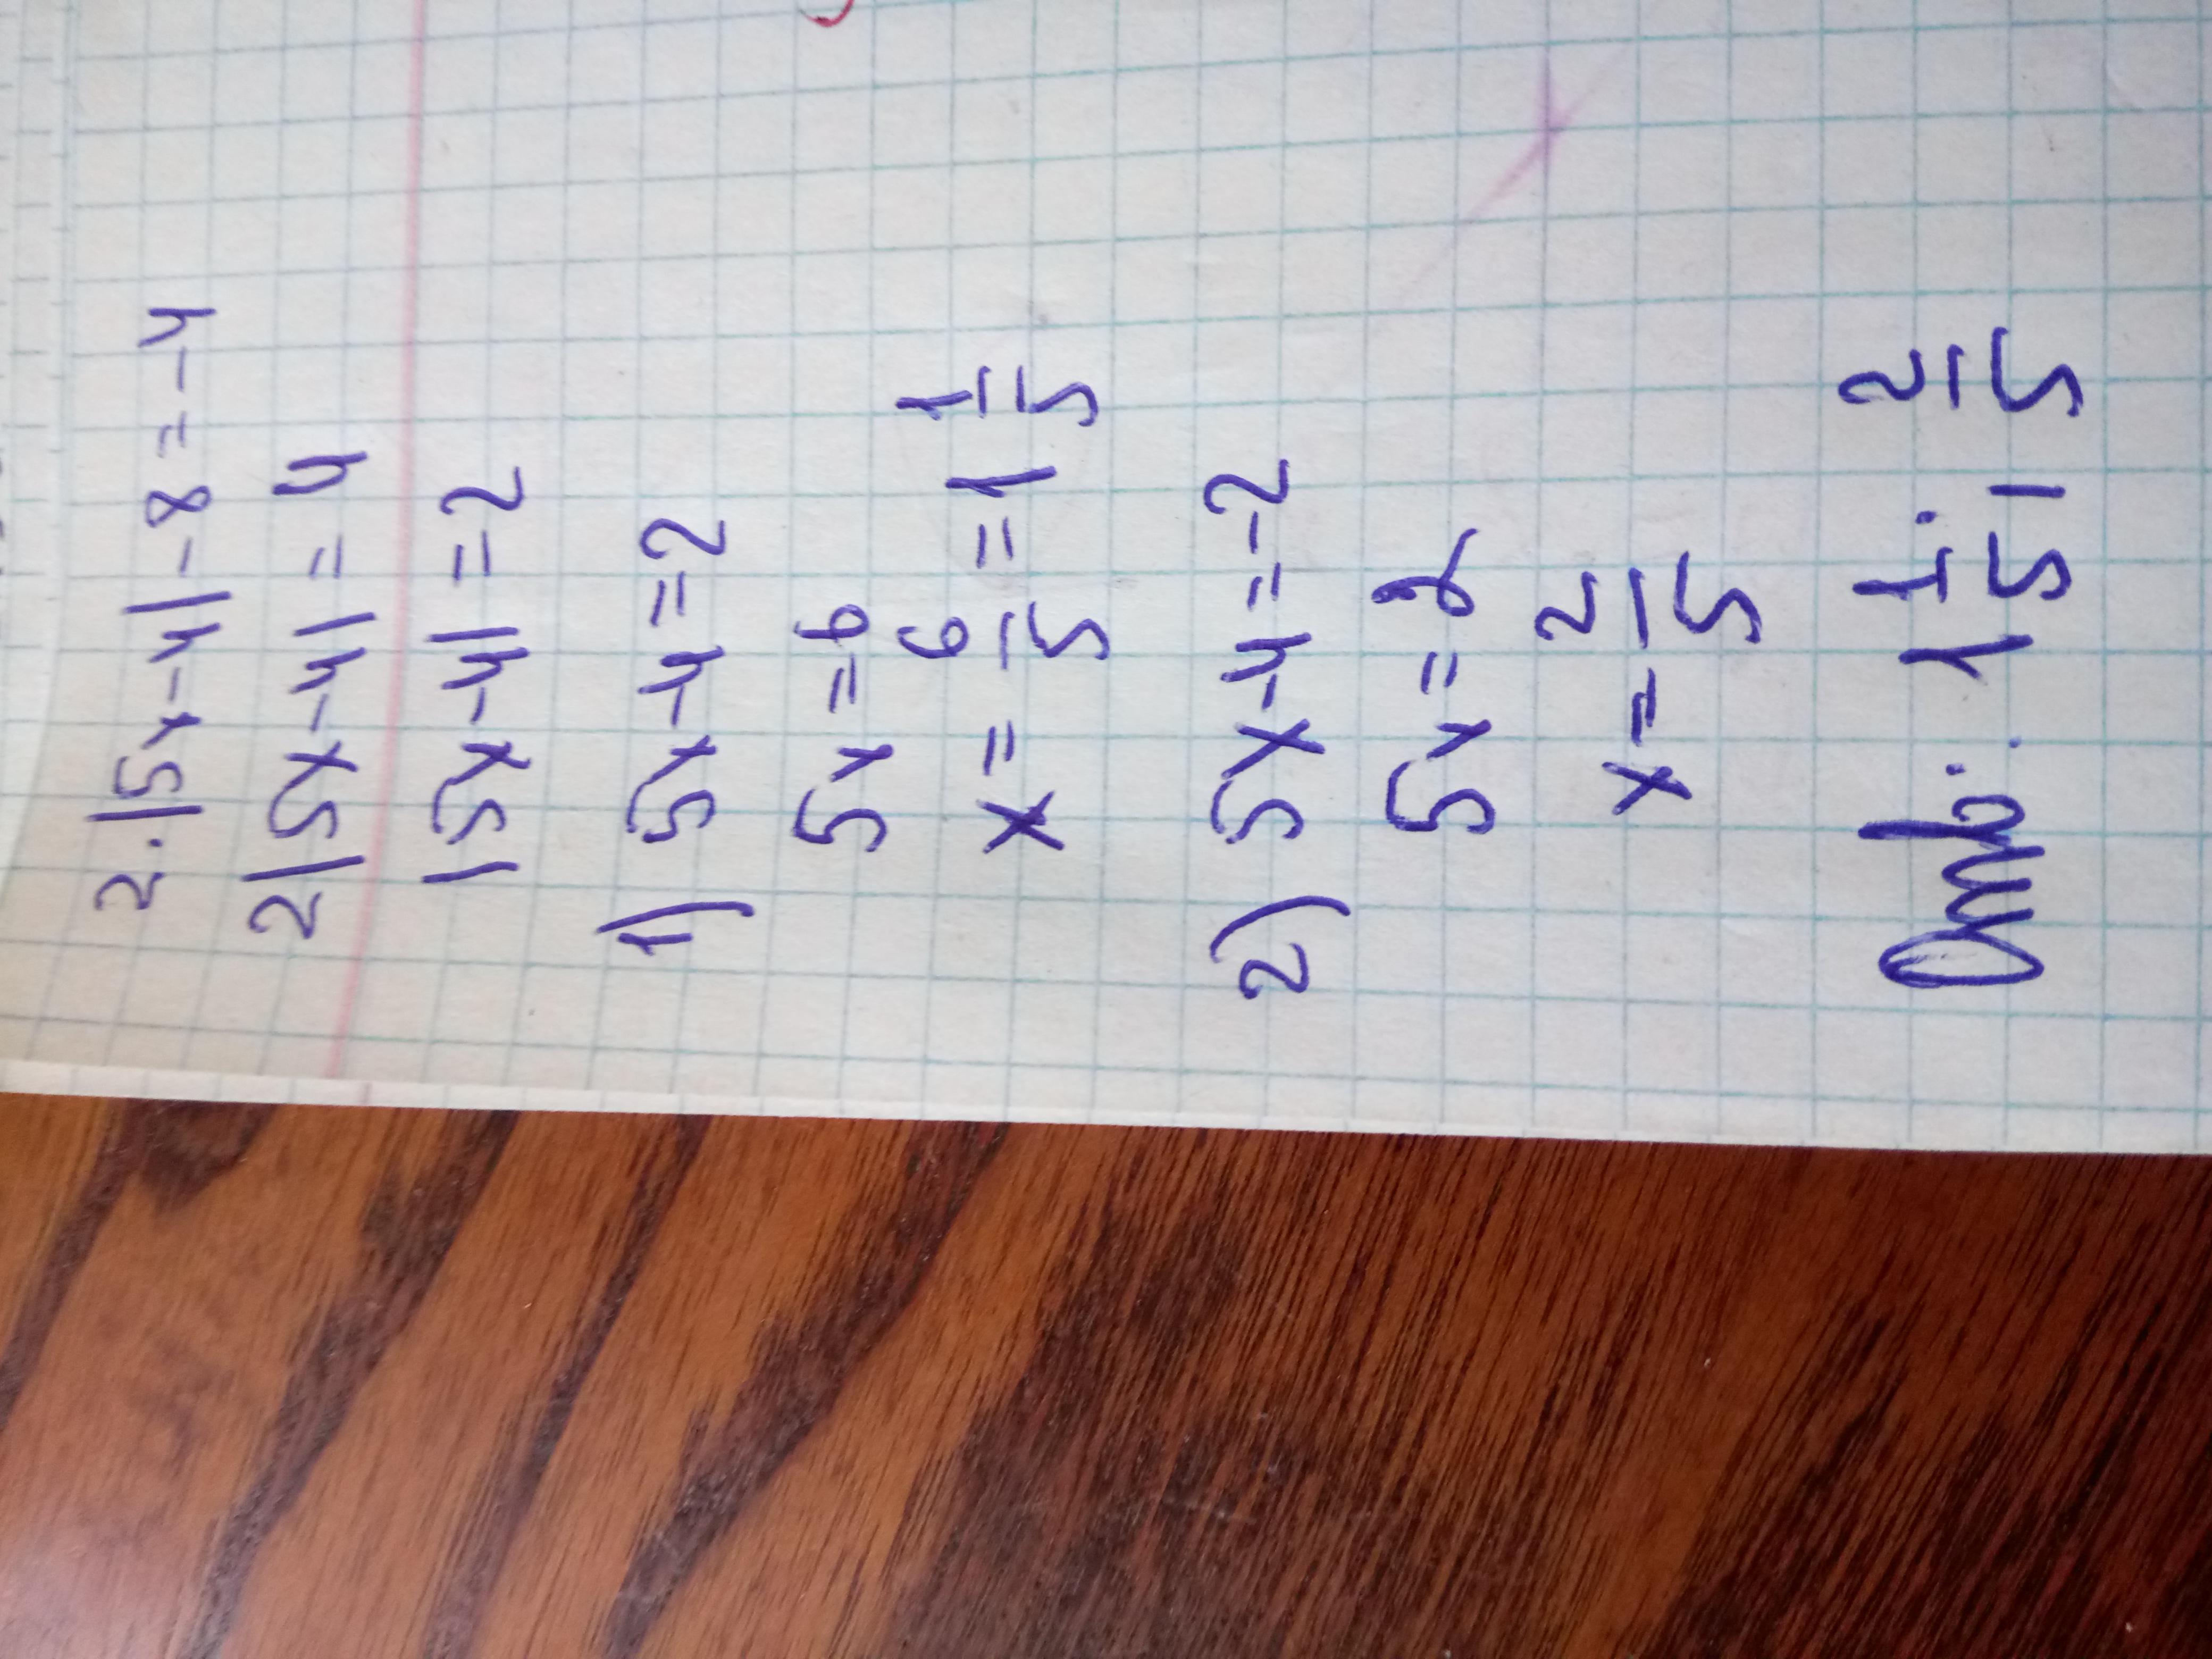 2·|5x-4|-8=-4
2|5x-4|=4
|5x-4|=2
1) 5x-4=2
5x=6
x=6/5=1 1/5
2) 5x-4=-2
5x=2
x=2/5
Отв.: 1 1/5; 2/5